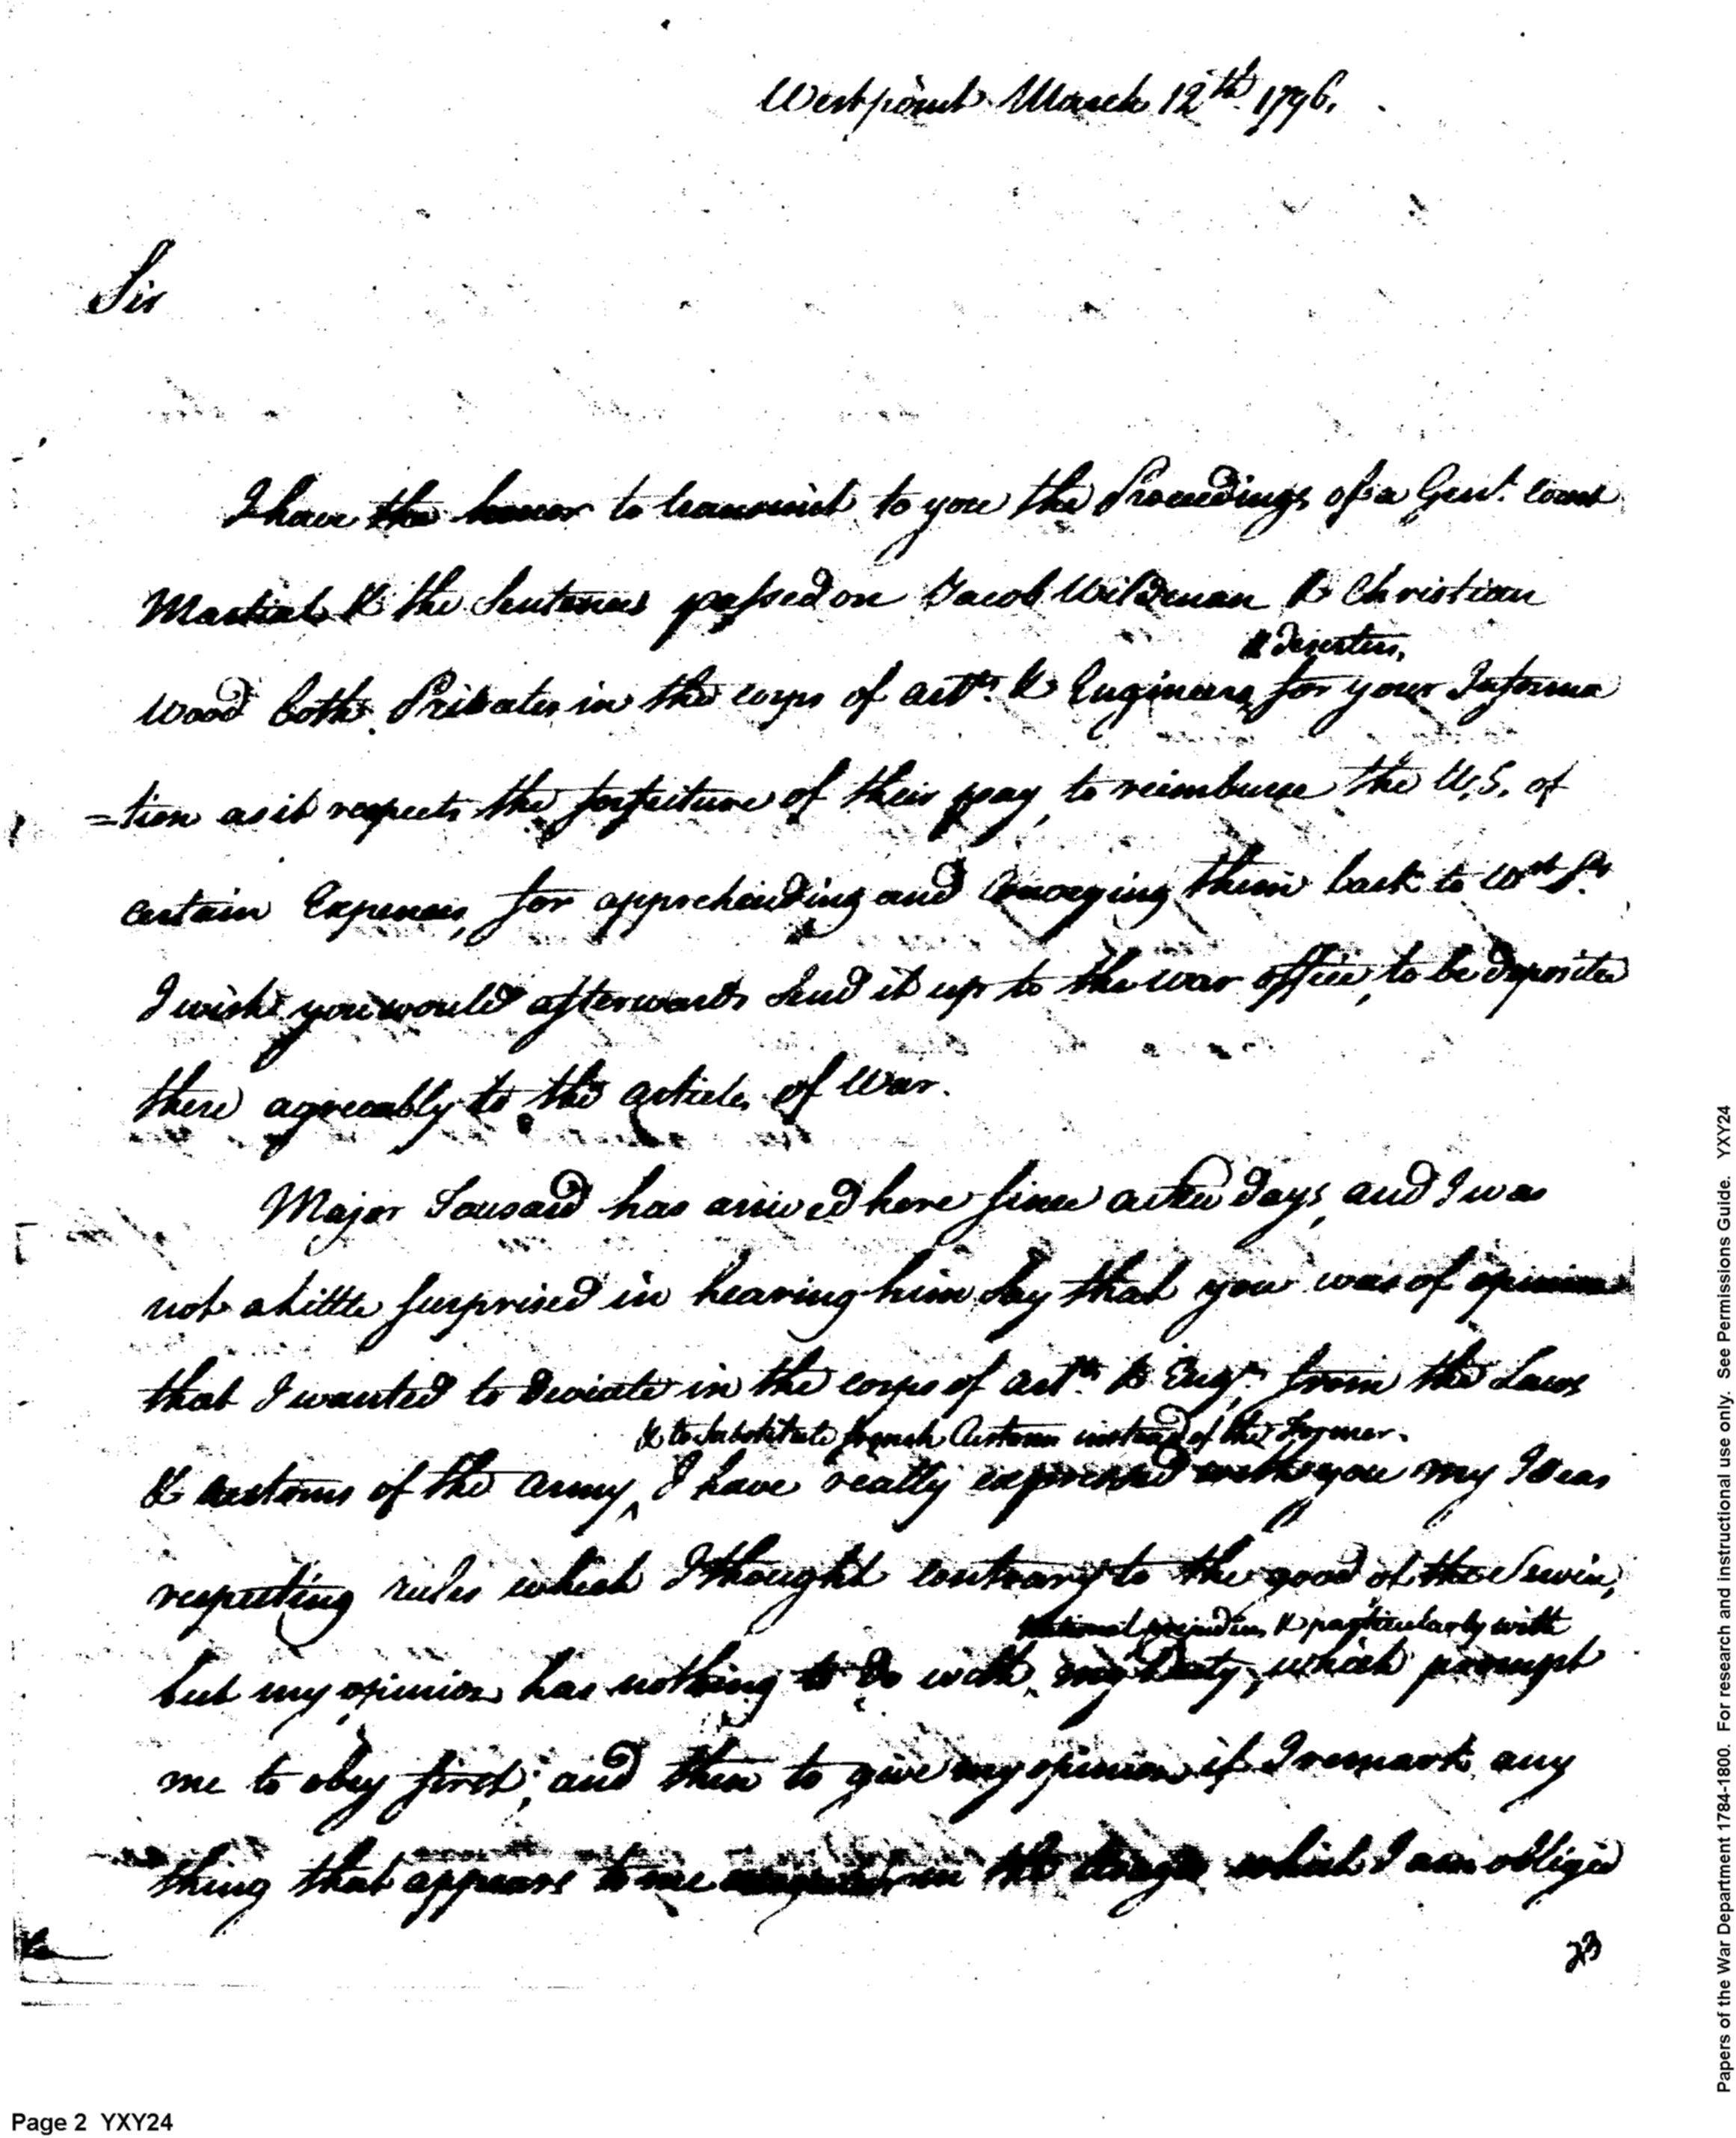 Westpoint March 12th 1796.
Sir
I have the honor to transmit to you the Proceedings of a Genl. Court
Martial & the Sentences passed on Jacob Wildeman & Christian
& deserters,
Wood both Privates in the corps of artts. & Engineers for your Informa
=tion as it respects the forfeiture of their pay, to reimburse the U.S. of
certain Expences, for apprehending and conveying them back to Wst Pt
I wish you would afterwards Send it up to the war office, to be deposited
there agreeably to the articles of War.
Major Tousard has arrived here since a few days, and I was
not a little surprised in hearing him say that you was of opinion
that I wanted to deviate in the corps of artts & Engrs from the Laws
& to Substitute french Customs instead of the Former.
& customs of the army, I have really expressed with you my Ideas
respecting rules which I thought contrary to the good of the Service,
National prejudices & particularly with
but my opinion has nothing to do with my Duty, which prompt
me to obey first; and then to give my opinion if I remark any
thing that appears to me in the which I am obliged
23
Page 2 YXY24
Papers of the War Department 1784-1800. For research and instructional use only. See Permissions Guide. YXY24